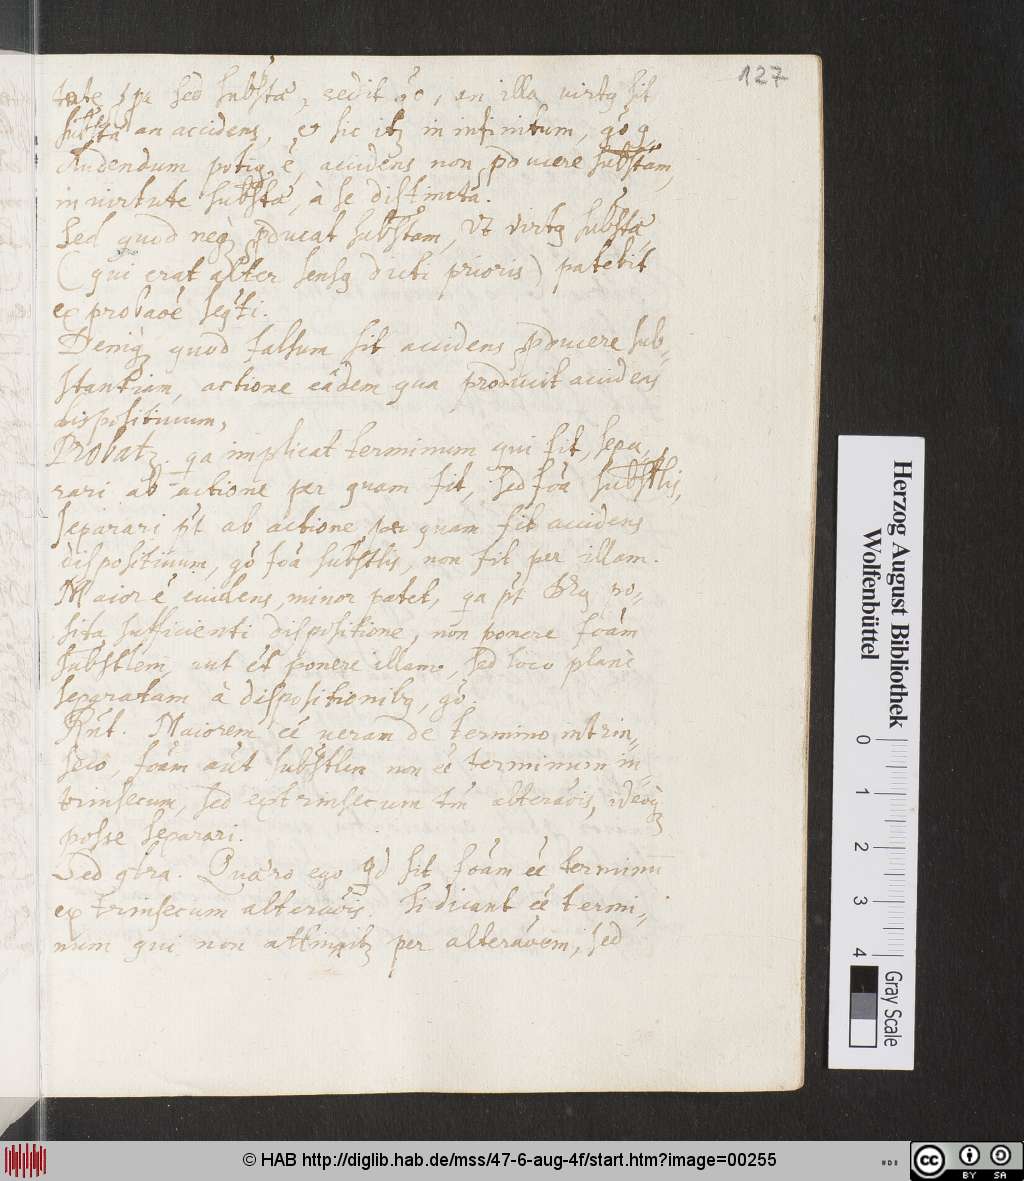 127
tate sua sed substæ, redit q̃o, an illa virtus sit
substa an accidens, et sic itq in infinitum, gõ
cludendum potiq é, accidens non producere substam,
in virtute substæ, à se distincta.
Sed quod neq producat substam, ut virtq substæ
(qui erat alter sensq dicti prioris) patebit
ex probaõe seq̃ti.
Deniq quod falsum sit accidens producere sub-
stantiam, actione eâdem qua producit accidens
dispositiuum,
Probatz. qa implicat terminum qui fit, sepa,,
rari ab actione per quam fit, sed foã substlis,
separari p̃t ab actione per quam fit accidens
dispositiuum, gõ foã substlis, non fit per illam.
Maior é euidens, minor patet, qa p̃t po-
sita sufficienti dispositione, non ponere foãm
substlem, aut ét ponere illam, sed loco planè
separatam à dispositionibq, gõ.
Rñt. Maiorem eé ueram de termino intrin,,
seco, foãm aũt substlem non eé terminum in,,
trinsecum, sed extrinsecum tm̃ alteraõis, ideoq
posse separari.
Sed qtra. Quæro ego qd sit foãm eé terminũ
extrinsecum alteraõis. Si dicant eé termi,,
num qui non attingitz per alteraõem, sed
Herzog August Bibliothek
Wolfenbüttel
0 1 2 3 4
Gray Scale
© HAB http://diglib.hab.de/mss/47-6-aug-4f/start.htm?image=00255
cc BY SA